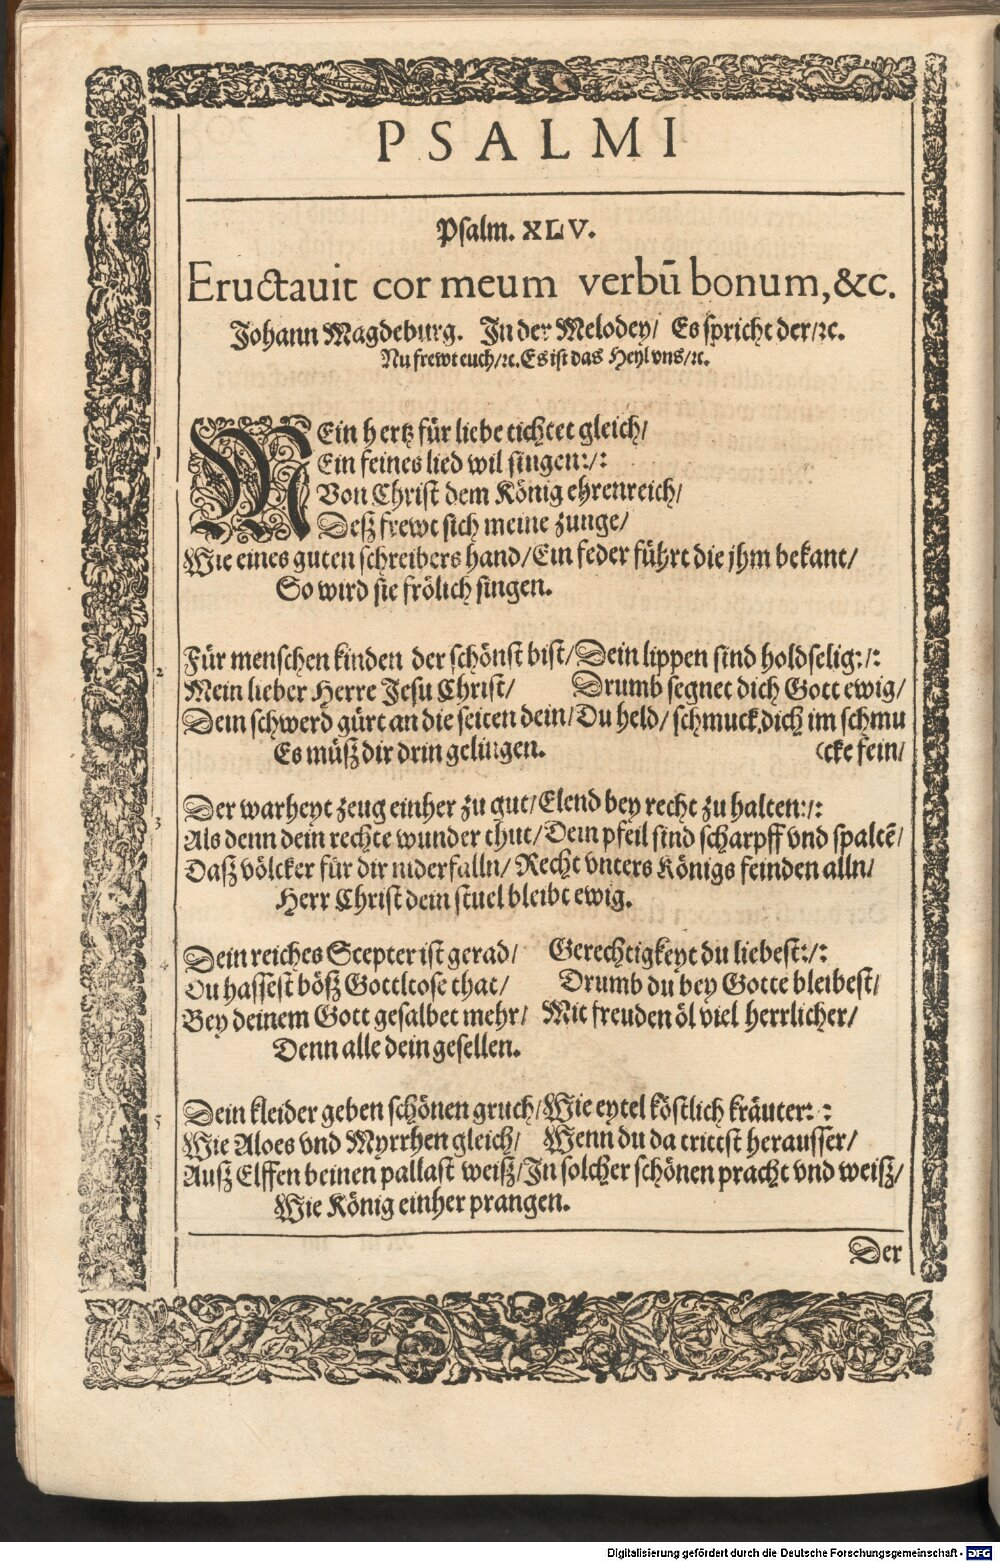 PSALMI
Psalm. XLV.
Eructauit cor meum verbū bonum, &c.
Johann Magdeburg. In der Melodey/ Es spricht der/ꝛc.
Nu frewt euch/ꝛc. Es ist das Heyl vns/ꝛc.
1 MEin hertz für liebe tichtet gleich/
Ein feines lied wil singen:/:
Von Christ dem König ehrenreich/
Deß frewt sich meine zunge/
Wie eines guten schreibers hand/ Ein feder führt die jhm bekant/
So wird sie frölich singen.
2 Für menschen kinden der schönst bist/ Dein lippen sind holdselig:/:
Mein lieber Herre Jesu Christ/ Drumb segnet dich Gott ewig/
Dein schwerd gürt an die seiten dein/ Du held/ schmuck dich im schmu
Es müß dir drin gelingen. (cke fein/
3 Der warheyt zeug einher zu gut/ Elend bey recht zu halten:/:
Als denn dein rechte wunder thut/ Dein pfeil sind scharpff vnd spaltē/
Daß völcker für dir niderfalln/ Recht vnters Königs feinden alln/
Herr Christ dein stuel bleibt ewig.
4 Dein reiches Scepter ist gerad/ Gerechtigkeyt du liebest:/:
Du hassest böß Gottlose that/ Drumb du bey Gotte bleibest/
Bey deinem Gott gesalbet mehr/ Mit freuden öl viel herrlicher/
Denn alle dein gesellen.
5 Dein kleider geben schönen gruch/ Wie eytel köstlich kräuter: :
Wie Aloes vnd Myrrhen gleich/ Wenn du da trittst herausser/
Auß Elffen beinen pallast weiß/ In solcher schönen pracht vnd weiß/
Wie König einher prangen.
Der
Digitalisierung gefördert durch die Deutsche Forschungsgemeinschaft - DFG